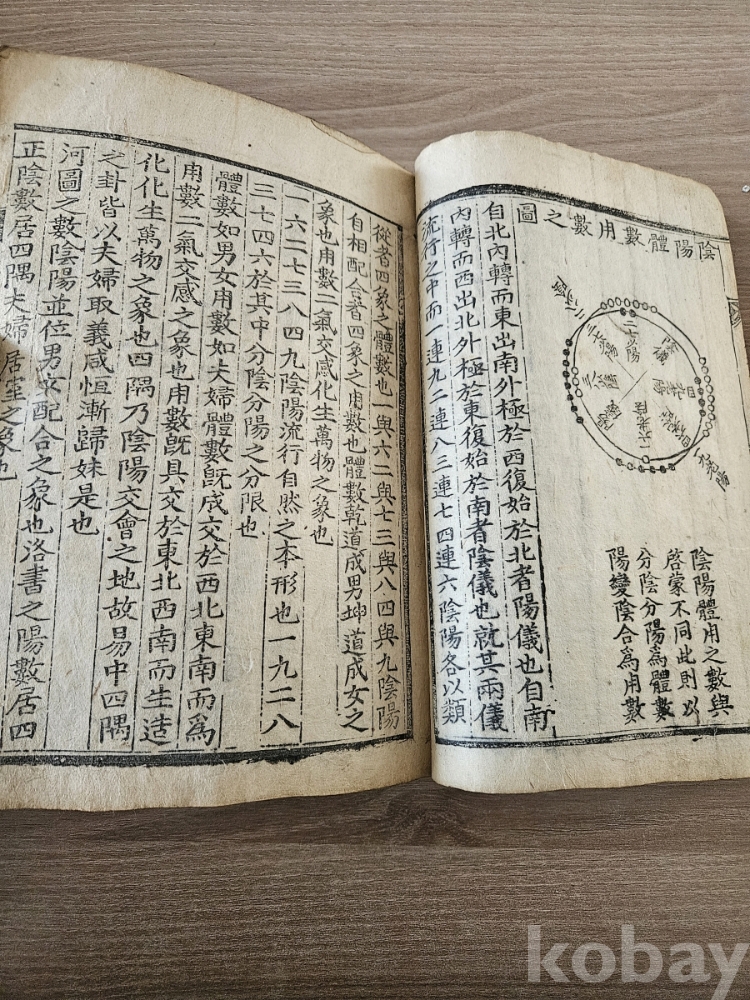 陰陽體數用數之圖
陰陽體用之數與
啓蒙不同此則以
分陰分陽爲體數
陽變陰合爲用數
自北內轉而東出南外極於西復始於北者陽儀也自南
內轉而西出北外極於東復始於南者陰儀也就其兩儀
流行之中而一連九二連八三連七四連六陰陽各以類
從者四象之體數也一與六二與七三與八四與九陰陽
自相配合者四象之用數也體數乾道成男坤道成女之
象也用數二氣交感化生萬物之象也
一六二七三八四九陰陽流行自然之本形也一九二八
三七四六於其中分陰分陽之分限也
體數如男女用數如夫婦體數旣成交於西北東南而爲
用數二氣交感之象也用數旣具交於東北西南而生造
化化生萬物之象也四隅乃陰陽交會之地故易中四隅
之卦皆以夫婦取義咸恒漸歸妹是也
河圖之數陰陽並位男女配合之象也洛書之陽數居四
正陰數居四隅夫婦居室之象也
kobay